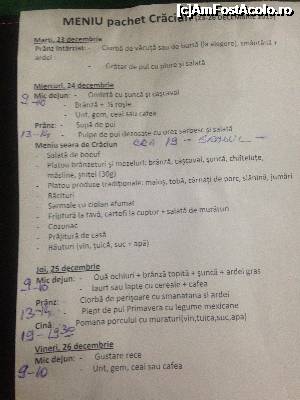 (c)AmFostAcolo.ro
MENIU pachet Crăciun (23-26 DECEMBRIE 2015)
Marti, 23 decembrie
Prânz întârziat: - Ciorbă de văcuță sau de burtă (la alegere), smântână +
ardei
- Grătar de pui cu piure și salată
Miercuri, 24 decembrie
Mic dejun: - Omletă cu șuncă și cașcaval
9-10
- Brânză + roșie
- Unt, gem, ceai sau cafea
Prânz: - Supă de pui
13-14
- Pulpe de pui dezosate cu orez sârbesc și salată
Meniu seara de Crăciun ORA 19 -
- Salată de boeuf
- Platou brânzeturi și mezeluri: brânză, cașcaval, șuncă, chifteluțe,
măsline, șnițel (30g)
- Platou produse tradiționale: maioș, tobă, cârnați de porc, slănină, jumări
- Răcituri
- Sarmale cu ciolan afumat
- Friptură la tavă, cartofi la cuptor + salată de murături
- Cozonac
- Prăjitură de casă
- Băuturi (vin, țuică, suc + apă)
Joi, 25 decembrie
9-10
Mic dejun: - Ouă ochiuri + brânză topită + șuncă + ardei gras
- Iaurt sau lapte cu cereale + cafea
Prânz: - Ciorbă de perișoare cu smanatana si ardei
13-14
- Piept de pui Primavera cu legume mexicane
Cină: - Pomana porcului cu muraturi(vin,tuica,suc,apa)
19-19
Vineri, 26 decembrie
Mic dejun: - Gustare rece
9-10
- Unt, gem, ceai sau cafea